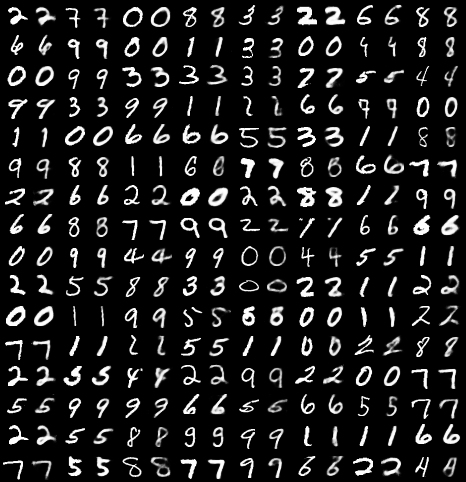 2 2 7 7 0 0 8 8 3 3 2 2 6 6 8 8
6 6 9 9 0 0 1 1 3 3 0 0 4 4 8 8
0 0 9 9 3 3 3 3 3 3 7 7 5 5 4 4
9 9 3 3 9 9 1 1 2 2 6 6 7 7 0 0
1 1 0 0 6 6 6 6 5 5 3 3 1 1 8 8
9 9 8 8 1 1 6 6 7 7 8 8 6 6 7 7
2 2 6 6 2 2 0 0 2 2 8 8 1 1 9 9
6 6 8 8 7 7 9 9 2 2 1 1 6 6 6 6
0 0 9 9 4 4 9 9 0 0 4 4 5 5 1 1
2 2 5 5 8 8 3 3 0 0 2 2 1 1 2 2
0 0 1 1 9 9 5 5 8 8 0 0 1 1 2 2
7 7 1 1 2 2 5 5 1 1 0 0 2 2 8 8
2 2 5 5 4 4 2 2 9 9 2 2 0 0 7 7
5 5 9 9 9 9 6 6 5 5 6 6 5 5 7 7
2 2 5 5 8 8 9 9 9 9 1 1 1 1 6 6
7 7 5 5 8 8 7 7 9 9 6 6 2 2 4 4